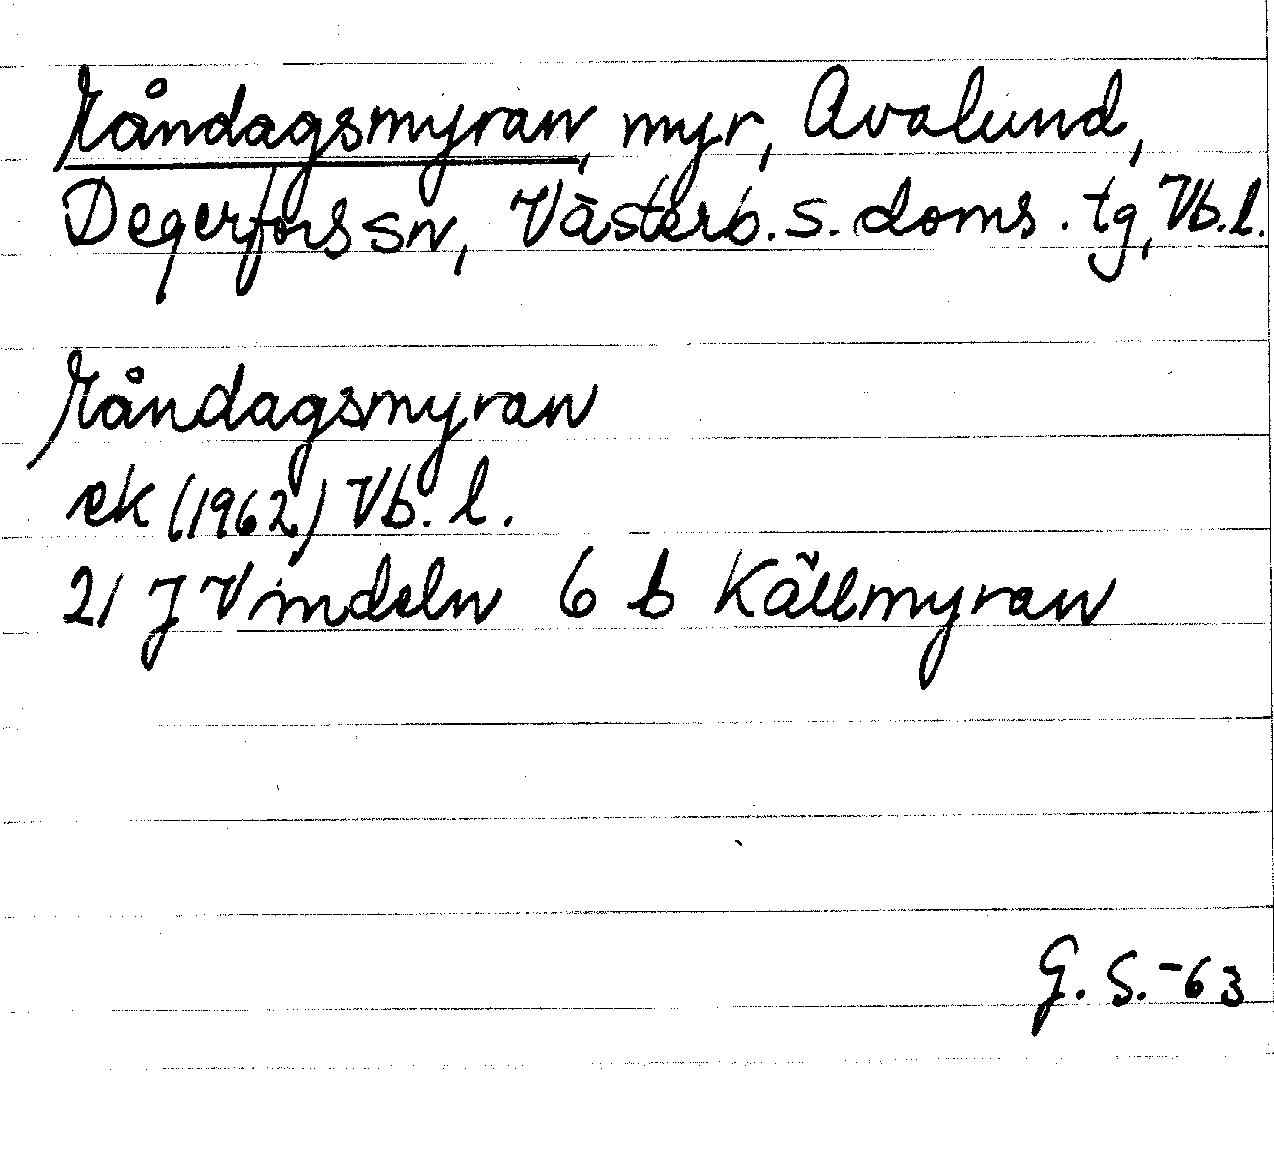 Måndagsmyran, myr, Avalund,
Degerfors sn, Västerb. s. doms. tg, Vb. l.
Måndagsmyran
ek (1962) Vb. l.
21 J Vindeln 6 b Källmyran
G. S. -63